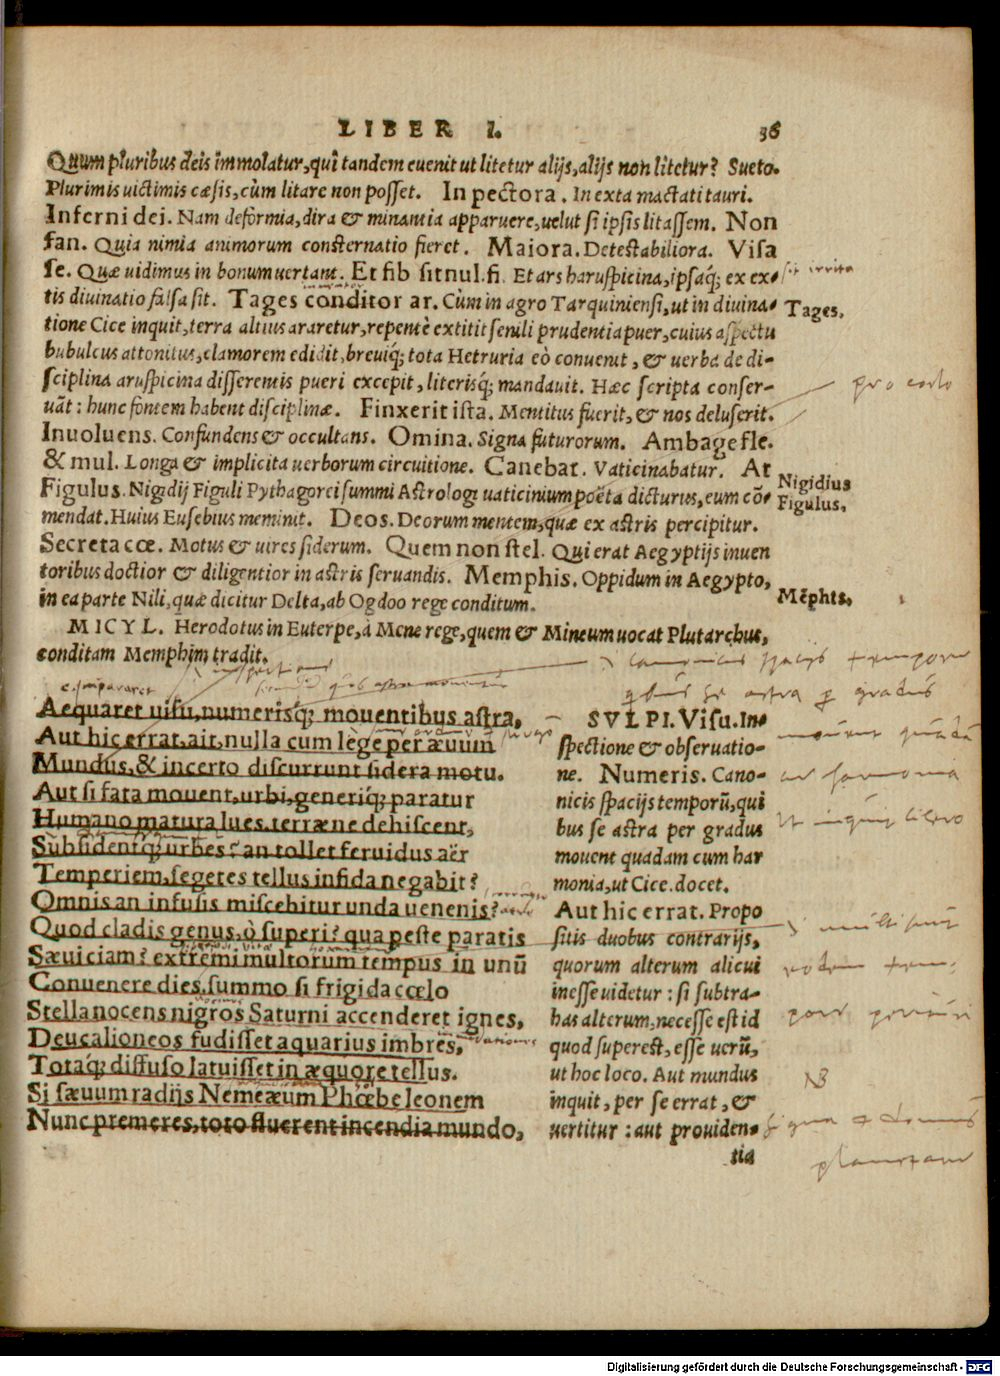 LIBER I. 36
Quum pluribus deis immolatur, qui tandem euenit ut litetur alijs, alijs non litetur? Sueto.
Plurimis uictimis cæsis, cùm litare non posset. In pectora. In exta mactati tauri.
Inferni dei. Nam deformia, dira & minantia apparuere, uelut si ipsis litassem. Non
fan. Quia nimia animorum consternatio fieret. Maiora. Detestabiliora. Visa
se. Quæ uidimus in bonum uertant. Et fib sit nul. fi. Et ars haruspicina, ipsaq; ex ex-
tis diuinatio falsa sit. Tages conditor ar. Cùm in agro Tarquiniensi, ut in diuina-
tione Cice inquit, terra altius araretur, repentè extitit senili prudentia puer, cuius aspectu
bubulcus attonitus, clamorem edidit, breuiq; tota Hetruria eò conuenit, & uerba de di-
sciplina aruspicina disserentis pueri excepit, literisq; mandauit. Hæc scripta conser-
uāt: hunc fontem habent disciplinæ. Finxerit ista. Mentitus fuerit, & nos deluserit.
Inuoluens. Confundens & occultans. Omina. Signa futurorum. Ambage fle.
& mul. Longa & implicita uerborum circuitione. Canebat. Vaticinabatur. At
Figulus. Nigidij Figuli Pythagorei summi Astrologi uaticinium poëta dicturus, eum cō-
mendat. Huius Eusebius meminit. Deos. Deorum mentem, quæ ex astris percipitur.
Secreta cœ. Motus & uires siderum. Quem non stel. Qui erat Aegyptijs inuen
toribus doctior & diligentior in astris seruandis. Memphis. Oppidum in Aegypto,
in ea parte Nili, quæ dicitur Delta, ab Ogdoo rege conditum.
MICYL. Herodotus in Euterpe, à Mene rege, quem & Mineum uocat Plutarchus,
conditam Memphim tradit.
sit irrita
Tages.
pro coelo
Nigidius
Figulus.
Mēphis.
Aequaret uisu, numerisq; mouentibus astra,
Aut hic errat, ait, nulla cum lege per æuum
Mundus, & incerto discurrunt sidera motu.
Aut si fata mouent, urbi, generiq; paratur
Humano matura lues. terræne dehiscent,
Subsidentq; urbes? an tollet feruidus aër
Temperiem, segetes tellus infida negabit?
Omnis an infusis miscebitur unda uenenis?
Quod cladis genus, ò superi? qua peste paratis
Sæuiciam? extremi multorum tempus in unū
Conuenere dies. summo si frigida cœlo
Stella nocens nigros Saturni accenderet ignes,
Deucalioneos fudisset aquarius imbres,
Totaq; diffuso latuisset in æquore tellus.
Si sæuum radijs Nemeæum Phœbe leonem
Nunc premeres, toto fluerent incendia mundo,
SVLPI. Visu. In-
spectione & obseruatio-
ne. Numeris. Cano-
nicis spacijs temporū, qui
bus se astra per gradus
mouent quadam cum har
monia, ut Cice. docet.
Aut hic errat. Propo
sitis duobus contrarijs,
quorum alterum alicui
inesse uidetur: si subtra-
has alterum, necesse est id
quod superest, esse uerū,
ut hoc loco. Aut mundus
inquit, per se errat, &
uertitur: aut prouiden-
tia
canonicis spacijs temporum
quibus se astra per gradus
ut inquit Cicero
NB
Digitalisierung gefördert durch die Deutsche Forschungsgemeinschaft - DFG